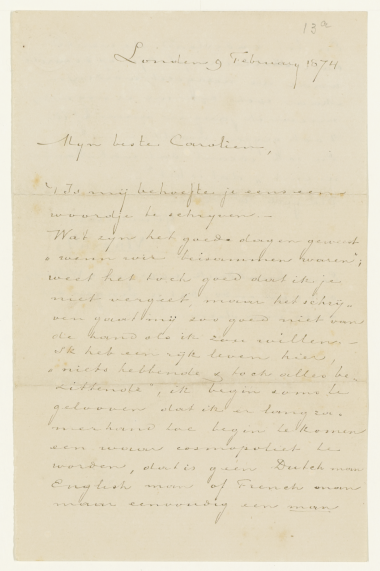 13a
Londen 9 February 1874
Mijn beste Carolien,
't Is mij behoefte je eens een
woordje te schrijven.—
Wat zijn het goede dagen geweest
„wenn wir beisammen waren";
weet het toch goed dat ik je
niet vergeet, maar het schrij-
ven gaat mij zoo goed niet van
de hand als ik zou willen.—
Ik heb een rijk leven hier,
„niets hebbende & toch alles be-
zittende", ik begin soms te
gelooven dat ik er langza-
merhand toe begin te komen
een waar cosmopoliet te
worden, dat is geen Dutch man
English man of French man
maar eenvoudig een man